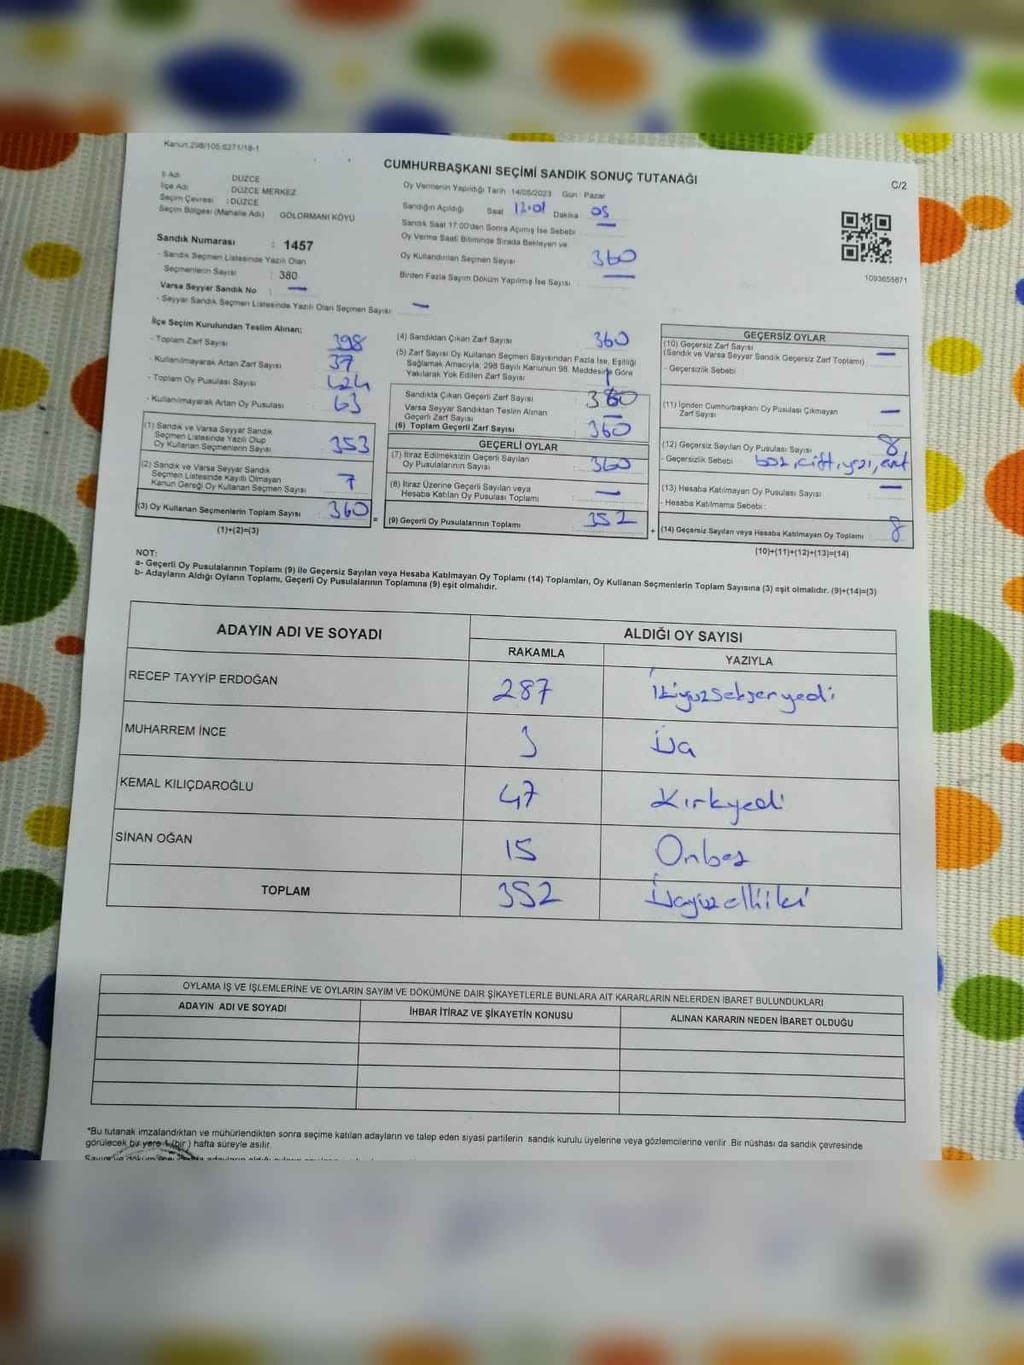 Kanun.298/105;6271/18-1
CUMHURBAŞKANI SEÇİMİ SANDIK SONUÇ TUTANAĞI
C/2
İl Adı : DÜZCE
İlçe Adı : DÜZCE MERKEZ
Seçim Çevresi : DÜZCE
Seçim Bölgesi (Mahalle Adı) : GÖLORMANI KÖYÜ
Sandık Numarası : 1457
- Sandık Seçmen Listesinde Yazılı Olan
Seçmenlerin Sayısı : 380
Varsa Seyyar Sandık No : —
- Seyyar Sandık Seçmen Listesinde Yazılı Olan Seçmen Sayısı : —
Oy Vermenin Yapıldığı Tarih :14/05/2023 Gün : Pazar
Sandığın Açıldığı Saat Dakika 05
Sandık Saat 17:00'den Sonra Açılmış İse Sebebi : —
Oy Verme Saati Bitiminde Sırada Bekleyen ve
Oy Kullandırılan Seçmen Sayısı 360
Birden Fazla Sayım Döküm Yapılmış İse Sayısı : —
1093655871
İlçe Seçim Kurulundan Teslim Alınan;
- Toplam Zarf Sayısı 398
- Kullanılmayarak Artan Zarf Sayısı 37
- Toplam Oy Pusulası Sayısı 424
- Kullanılmayarak Artan Oy Pusulası 63
(1) Sandık ve Varsa Seyyar Sandık
Seçmen Listesinde Yazılı Olup
Oy Kullanan Seçmenlerin Sayısı 353
(2) Sandık ve Varsa Seyyar Sandık
Seçmen Listesinde Kayıtlı Olmayan
Kanun Gereği Oy Kullanan Seçmen Sayısı 7
(3) Oy Kullanan Seçmenlerin Toplam Sayısı 360
(1)+(2)=(3)
(4) Sandıktan Çıkan Zarf Sayısı 360
(5) Zarf Sayısı Oy Kullanan Seçmen Sayısından Fazla İse, Eşitliği
Sağlamak Amacıyla; 298 Sayılı Kanunun 98. Maddesine Göre
Yakılarak Yok Edilen Zarf Sayısı
Sandıkta Çıkan Geçerli Zarf Sayısı 360
Varsa Seyyar Sandıktan Teslim Alınan
Geçerli Zarf Sayısı —
(6) Toplam Geçerli Zarf Sayısı 360
GEÇERLİ OYLAR
(7) İtiraz Edilmeksizin Geçerli Sayılan
Oy Pusulalarının Sayısı 360
(8) İtiraz Üzerine Geçerli Sayılan veya
Hesaba Katılan Oy Pusulası Toplamı —
= (9) Geçerli Oy Pusulalarının Toplamı 352
GEÇERSİZ OYLAR
(10) Geçersiz Zarf Sayısı —
(Sandık ve Varsa Seyyar Sandık Geçersiz Zarf Toplamı)
- Geçersizlik Sebebi :
(11) İçinden Cumhurbaşkanı Oy Pusulası Çıkmayan
Zarf Sayısı —
(12) Geçersiz Sayılan Oy Pusulası Sayısı 8
- Geçersizlik Sebebi : boş, çift, yazı,
(13) Hesaba Katılmayan Oy Pusulası Sayısı —
- Hesaba Katılmama Sebebi :
+ (14) Geçersiz Sayılan veya Hesaba Katılmayan Oy Toplamı 8
(10)+(11)+(12)+(13)=(14)
NOT:
a- Geçerli Oy Pusulalarının Toplamı (9) ile Geçersiz Sayılan veya Hesaba Katılmayan Oy Toplamı (14) Toplamları, Oy Kullanan Seçmenlerin Toplam Sayısına (3) eşit olmalıdır. (9)+(14)=(3)
b- Adayların Aldığı Oyların Toplamı, Geçerli Oy Pusulalarının Toplamına (9) eşit olmalıdır.
ADAYIN ADI VE SOYADI ALDIĞI OY SAYISI
RAKAMLA YAZIYLA
RECEP TAYYİP ERDOĞAN 287 İkiyüzseksenyedi
MUHARREM İNCE 3 Üç
KEMAL KILIÇDAROĞLU 47 Kırkyedi
SİNAN OĞAN 15 Onbeş
TOPLAM 352 Üçyüzelliiki
OYLAMA İŞ VE İŞLEMLERİNE VE OYLARIN SAYIM VE DÖKÜMÜNE DAİR ŞİKAYETLERLE BUNLARA AİT KARARLARIN NELERDEN İBARET BULUNDUKLARI
ADAYIN ADI VE SOYADI İHBAR İTİRAZ VE ŞİKAYETİN KONUSU ALINAN KARARIN NEDEN İBARET OLDUĞU
*Bu tutanak imzalandıktan ve mühürlendikten sonra seçime katılan adayların ve talep eden siyasi partilerin sandık kurulu üyelerine veya gözlemcilerine verilir .Bir nüshası da sandık çevresinde
görülecek bir yere 1 (bir ) hafta süreyle asılır.